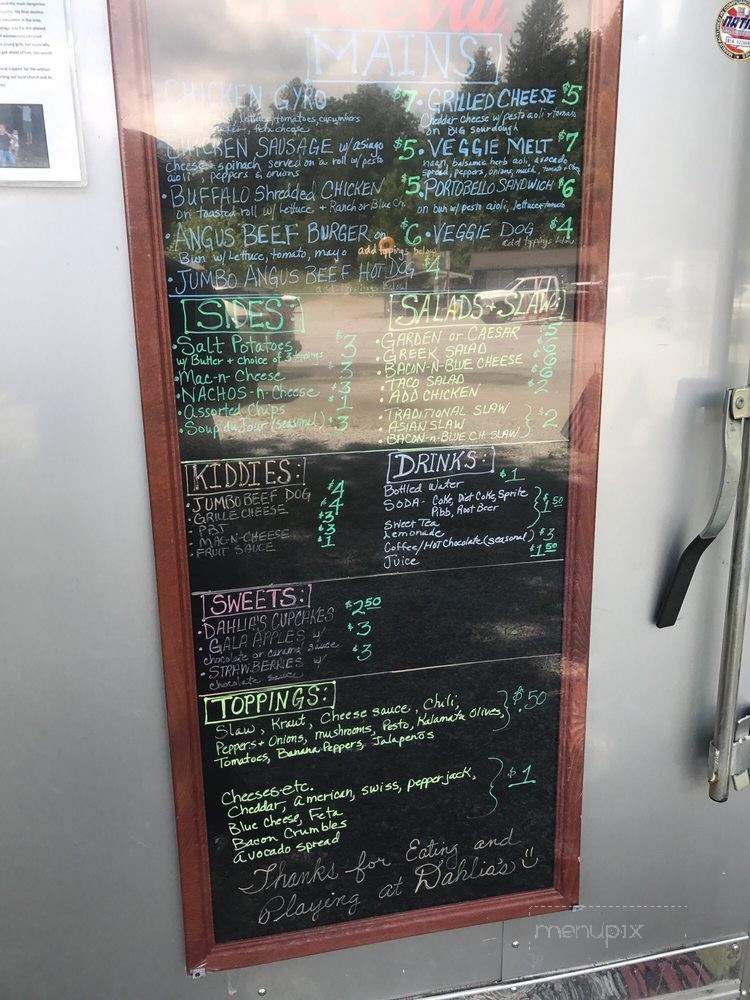 MAINS:
CHICKEN GYRO $7
lettuce, tomatoes, cucumbers
feta cheese
CHICKEN SAUSAGE w/ asiago $5
cheese + spinach serves on a roll w/ pesto
aoli peppers & onions
• BUFFALO Shredded CHICKEN $5
on Toasted roll w/ Lettuce + Ranch or Blue Ch.
• ANGUS BEEF BURGER on $6
Bun w/ Lettuce, tomato, mayo add toppings below
• JUMBO ANGUS BEEF HOT DOG $4
add toppings below
• GRILLED CHEESE $5
Chedder Cheese w/ pesto aoli + tomato
on BIG sourdough
• VEGGIE MELT $7
naan, balsamic herb aoli, avocado
spread, peppers, onions, mush, tomato + Chz
• PORTOBELLO SANDWICH $6
on bun w/ pesto aioli, lettuce + tomato
• VEGGIE DOG $4
add toppings below
SIDES:
• Salt Potatoes $3
w/ Butter + choice of 3 toppings
• Mac-n-Cheese $3
• NACHOS-n-Cheese $3
• Assorted Chips $1
• Soup du Jour (seasonal) $3
SALADS + SLAW:
• GARDEN or CAESAR $5
• GREEK SALAD $6
• BACON-N-BLUE CHEESE $6
• TACO SALAD $6
• ADD CHICKEN $2
• TRADITIONAL SLAW
• ASIAN SLAW $2
• BACON-n-BLUE CH. SLAW
KIDDIES:
• JUMBO BEEF DOG $4
• GRILLE CHEESE $4
• PBJ $3
• MAC-N-CHEESE $3
• FRUIT SAUCE $1
DRINKS:
Bottled Water $1
SODA - Coke, Diet Coke, Sprite
Pibb, Root Beer $1.50
Sweet Tea
Lemonade
Coffee/HOT Chocolate (seasonal) $3
Juice $1.50
SWEETS:
• DAHLIA'S CUPCAKES $2.50
• GALA APPLES w/ $3
chocolate or caramel sauce
• STRAWBERRIES w/ $3
chocolate sauce
TOPPINGS:
Slaw, Kraut, Cheese sauce, Chili, $.50
Peppers + Onions, mushrooms, Pesto, Kalamata Olives,
Tomatoes, Banana Peppers, Jalapeños
Cheeses etc.
Cheddar, American, swiss, pepperjack, $1
Blue Cheese, Feta
Bacon Crumbles
Avocado spread
Thanks for Eating and
Playing at Dahlia's
menupix